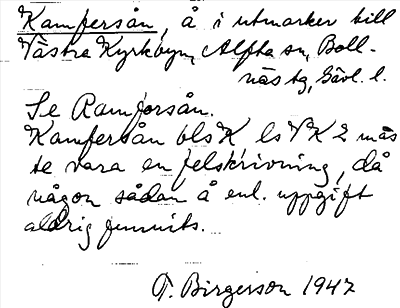 Kamfersån, å i utmarker till
Västra Kyrkbyn, Alfta sn, Boll-
näs tg, Gävl. l.
Se Ramforsån.
Kamfersån bls K ls V K 2 mås
te vara en felskrivning, då
någon sådan å enl. uppgift
aldrig funnits.
T. Birgerson 1947